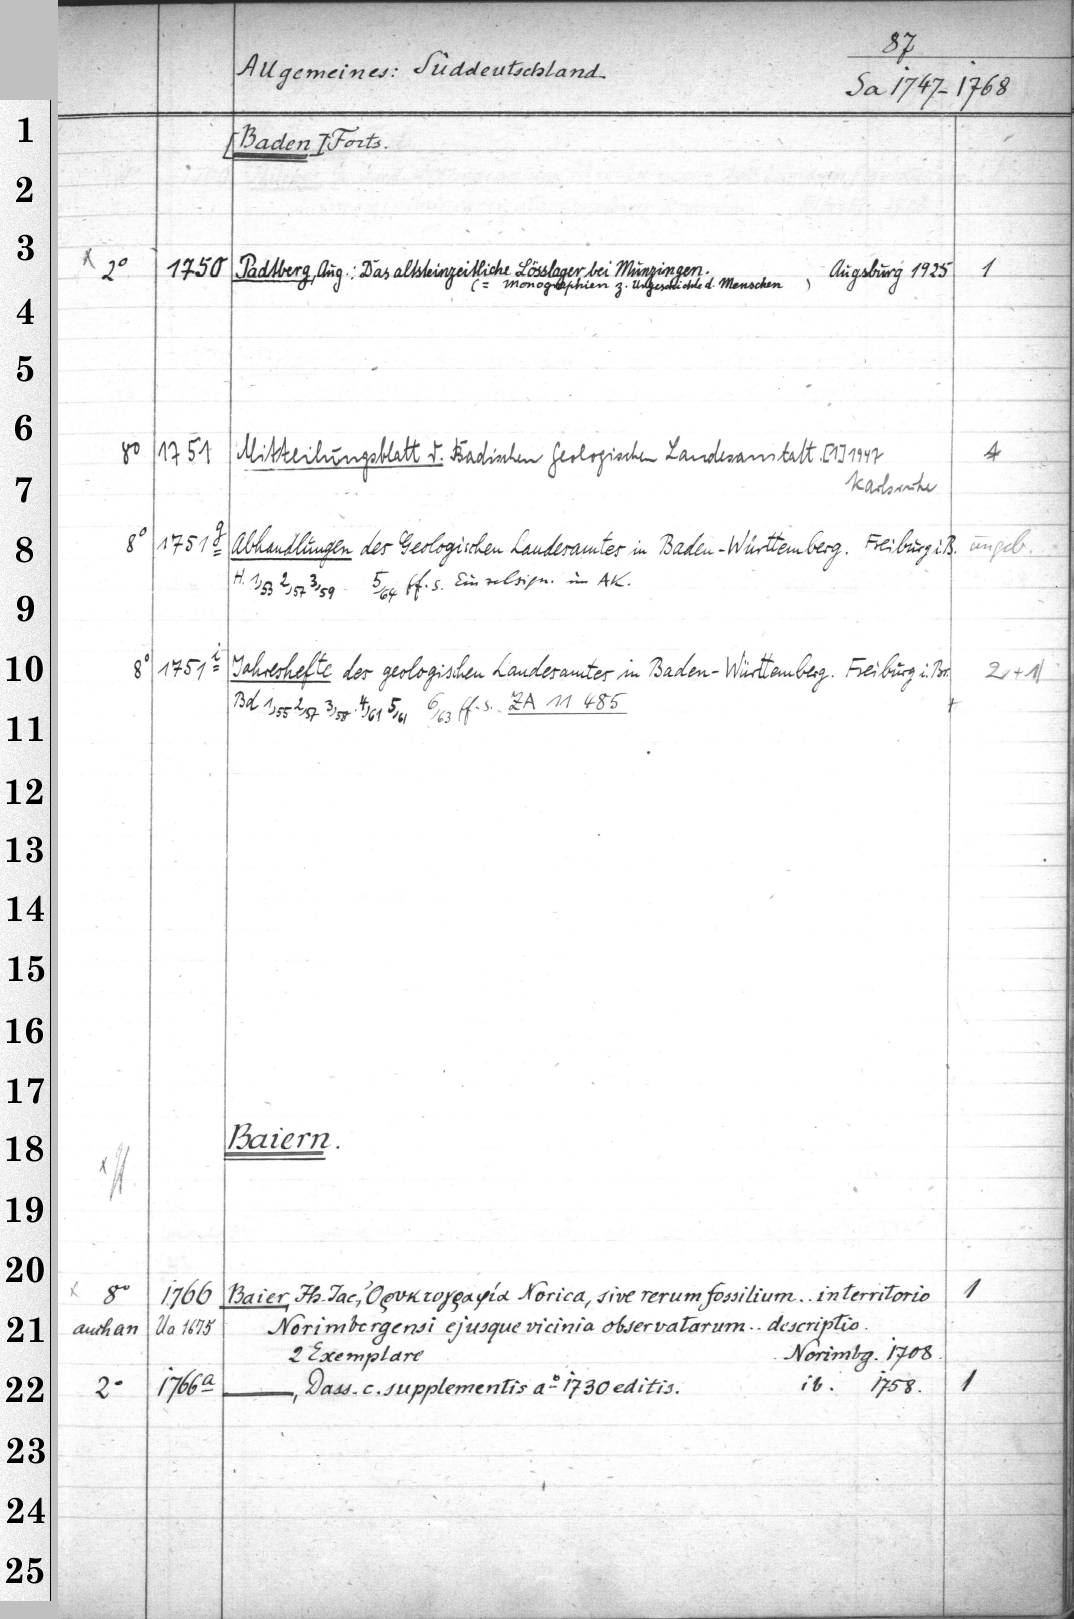 87
Allgemeines: Süddeutschland.
Sa 1747-1768
1
[Baden] Forts.
2
3
x 2° 1750 Padtberg, Aug.: Das altsteinzeitliche Lösslager bei Munzingen. Augsburg 1925 1
(= Monographien z. Urgeschichte d. Menschen )
4
5
6
8° 1751 Mitteilungsblatt d. Badischen Geologischen Landesanstalt. [1] 1947 4
7
Karlsruhe
8
8° 1751 g Abhandlungen des Geologischen Landesamtes in Baden-Württemberg. Freiburg i. B. ungeb.
H. 1,53 2,57 3,59 5/64 ff. s. Einzelsign. im AK.
9
10
8° 1751 i Jahreshefte des geologischen Landesamtes in Baden-Württemberg. Freiburg i. Br. 2,+1
Bd 1,55 2,57 3,58. 4,61 5,61 6,63 ff. s. ZA 11 485 +
11
12
13
14
15
16
17
18
Baiern.
x
19
20
x 8° 1766 Baier, Jh. Jac., Ὀρυκτογραφία Norica, sive rerum fossilium .. in territorio 1
21
auch an Ua 1675 Norimbergensi ejusque vicinia observatarum .. descriptio.
2 Exemplare Norimbg. 1708
22
2° 1766 a ———, Dass. c. supplementis a° 1730 editis. ib. 1758. 1
23
24
25